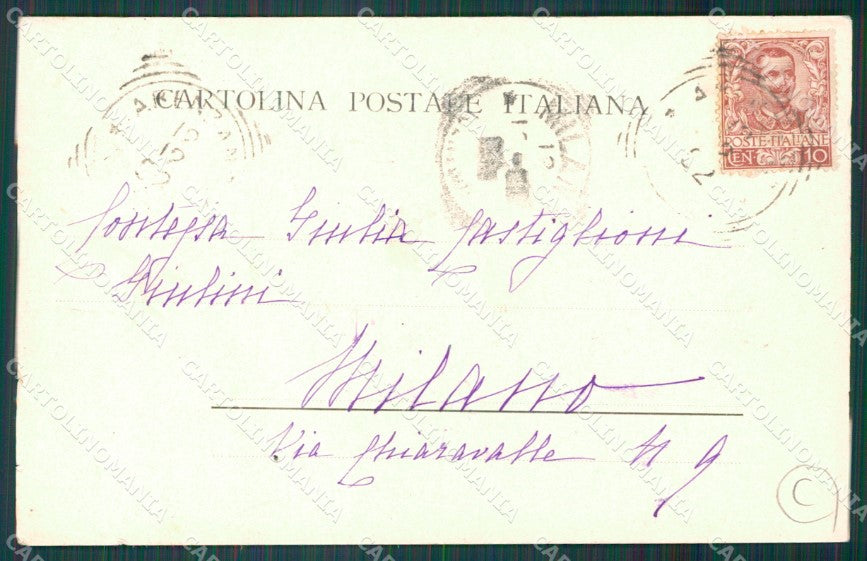 CARTOLINA POSTALE ITALIANA
POSTE·ITALIANE
CEN 10
Contessa Giulia Castiglioni
Giulini
Milano
Via Chiaravalle N 9
C
CARTOLINOMANIA